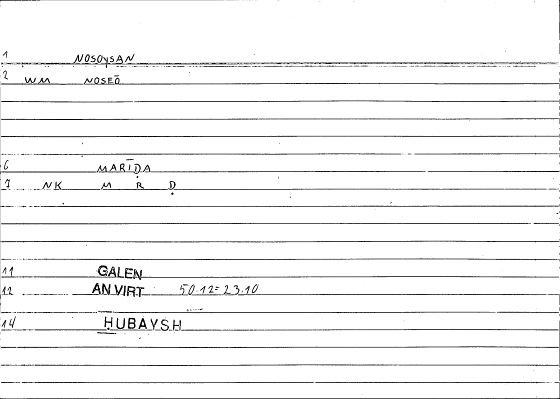 1 NOSOYSAN
2 WM NOSEŌ
6 MARĪḌA
7 NK M R Ḍ
11 GALEN
12 AN VIRT 50.12=23.10
14 ḤUBAYSH